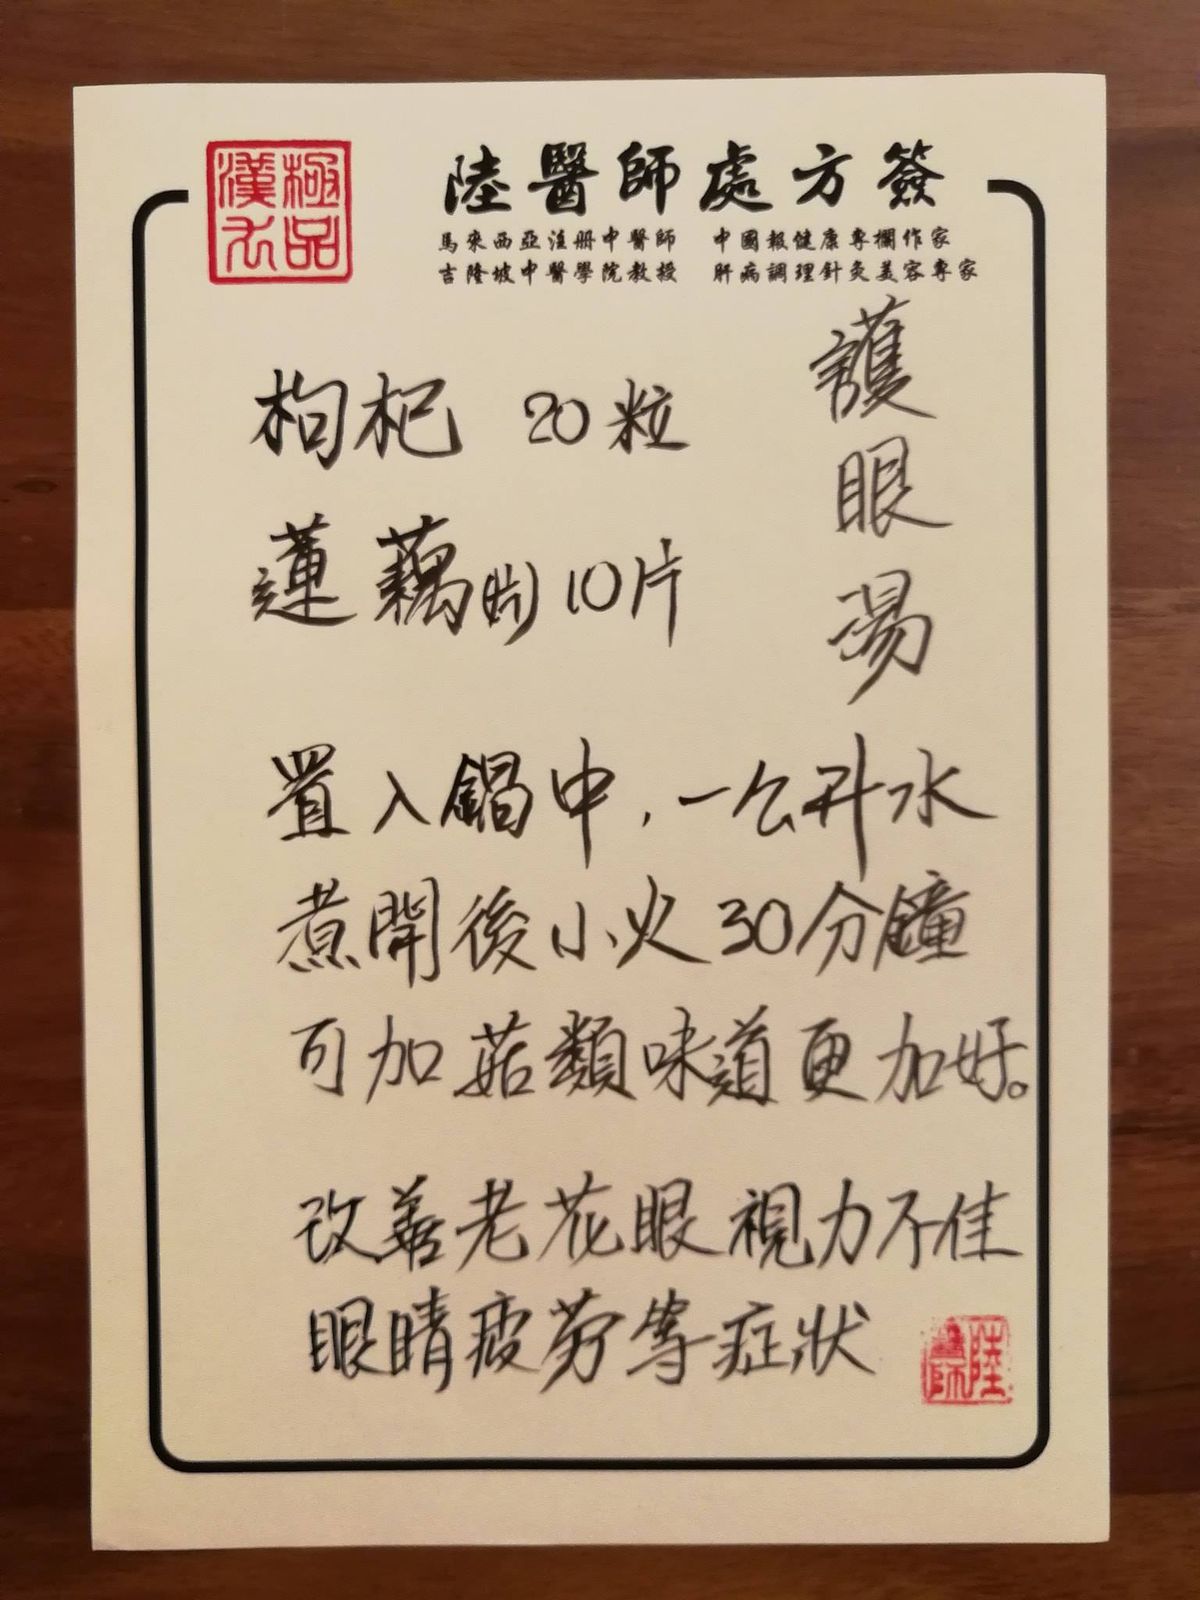 極品
漢方
陸醫師處方簽
馬來西亞注册中醫師 中國報健康專欄作家
吉隆坡中醫學院教授 肝病調理針灸美容專家
護眼湯
枸杞 20粒
蓮藕(片)10片
置入鍋中，一公升水
煮開後小火30分鐘
可加菇類味道更加好。
改善老花眼視力不佳
眼睛疲勞等症狀
陸醫師